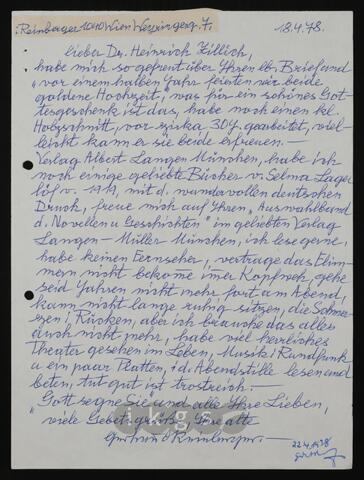 Reinberger 1040 Wien Weyringerg. 7.
18.4.78.
lieber Dr. Heinrich Zillich,
habe mich so gefreut über Ihren lb. Brief und
"vor einem halben Jahr feierten wir beide
goldene Hochzeit," was für ein schönes Got-
tesgeschenk ist das, habe noch einen kl.
Holzschnitt, vor zirka 30 J. gearbeitet, viel-
leicht kann er sie beide erfreuen. –
Verlag Albert Langen München, habe ich
noch einige geliebte Bücher v. Selma Lager
löf v. mit d. wundervollen deutschen
Druck, freue mich auf Ihren "Auswahlband
d. Novellen u Geschichten" im geliebten Verlag
Langen – Müller München, ich lese gerne,
habe keinen Fernseher, vertrage das Flim-
mern nicht bekome imer Kopfweh, gehe
seid Jahren nicht mehr fort am Abend,
kann nicht lange ruhig sitzen, die Schmer-
zen i. Rücken, aber ich brauche das alles
auch nicht mehr, habe viel herrliches
Theater gesehen im Leben, Musik i Rundfunk
u ein paar Platten, i.d. Abendstille lesen und
beten, tut gut ist trostreich. –
"Gott segne Sie" und alle Ihre Lieben,
viele Gebetsgrüße Ihre alte
Reinberger. –
ikgs